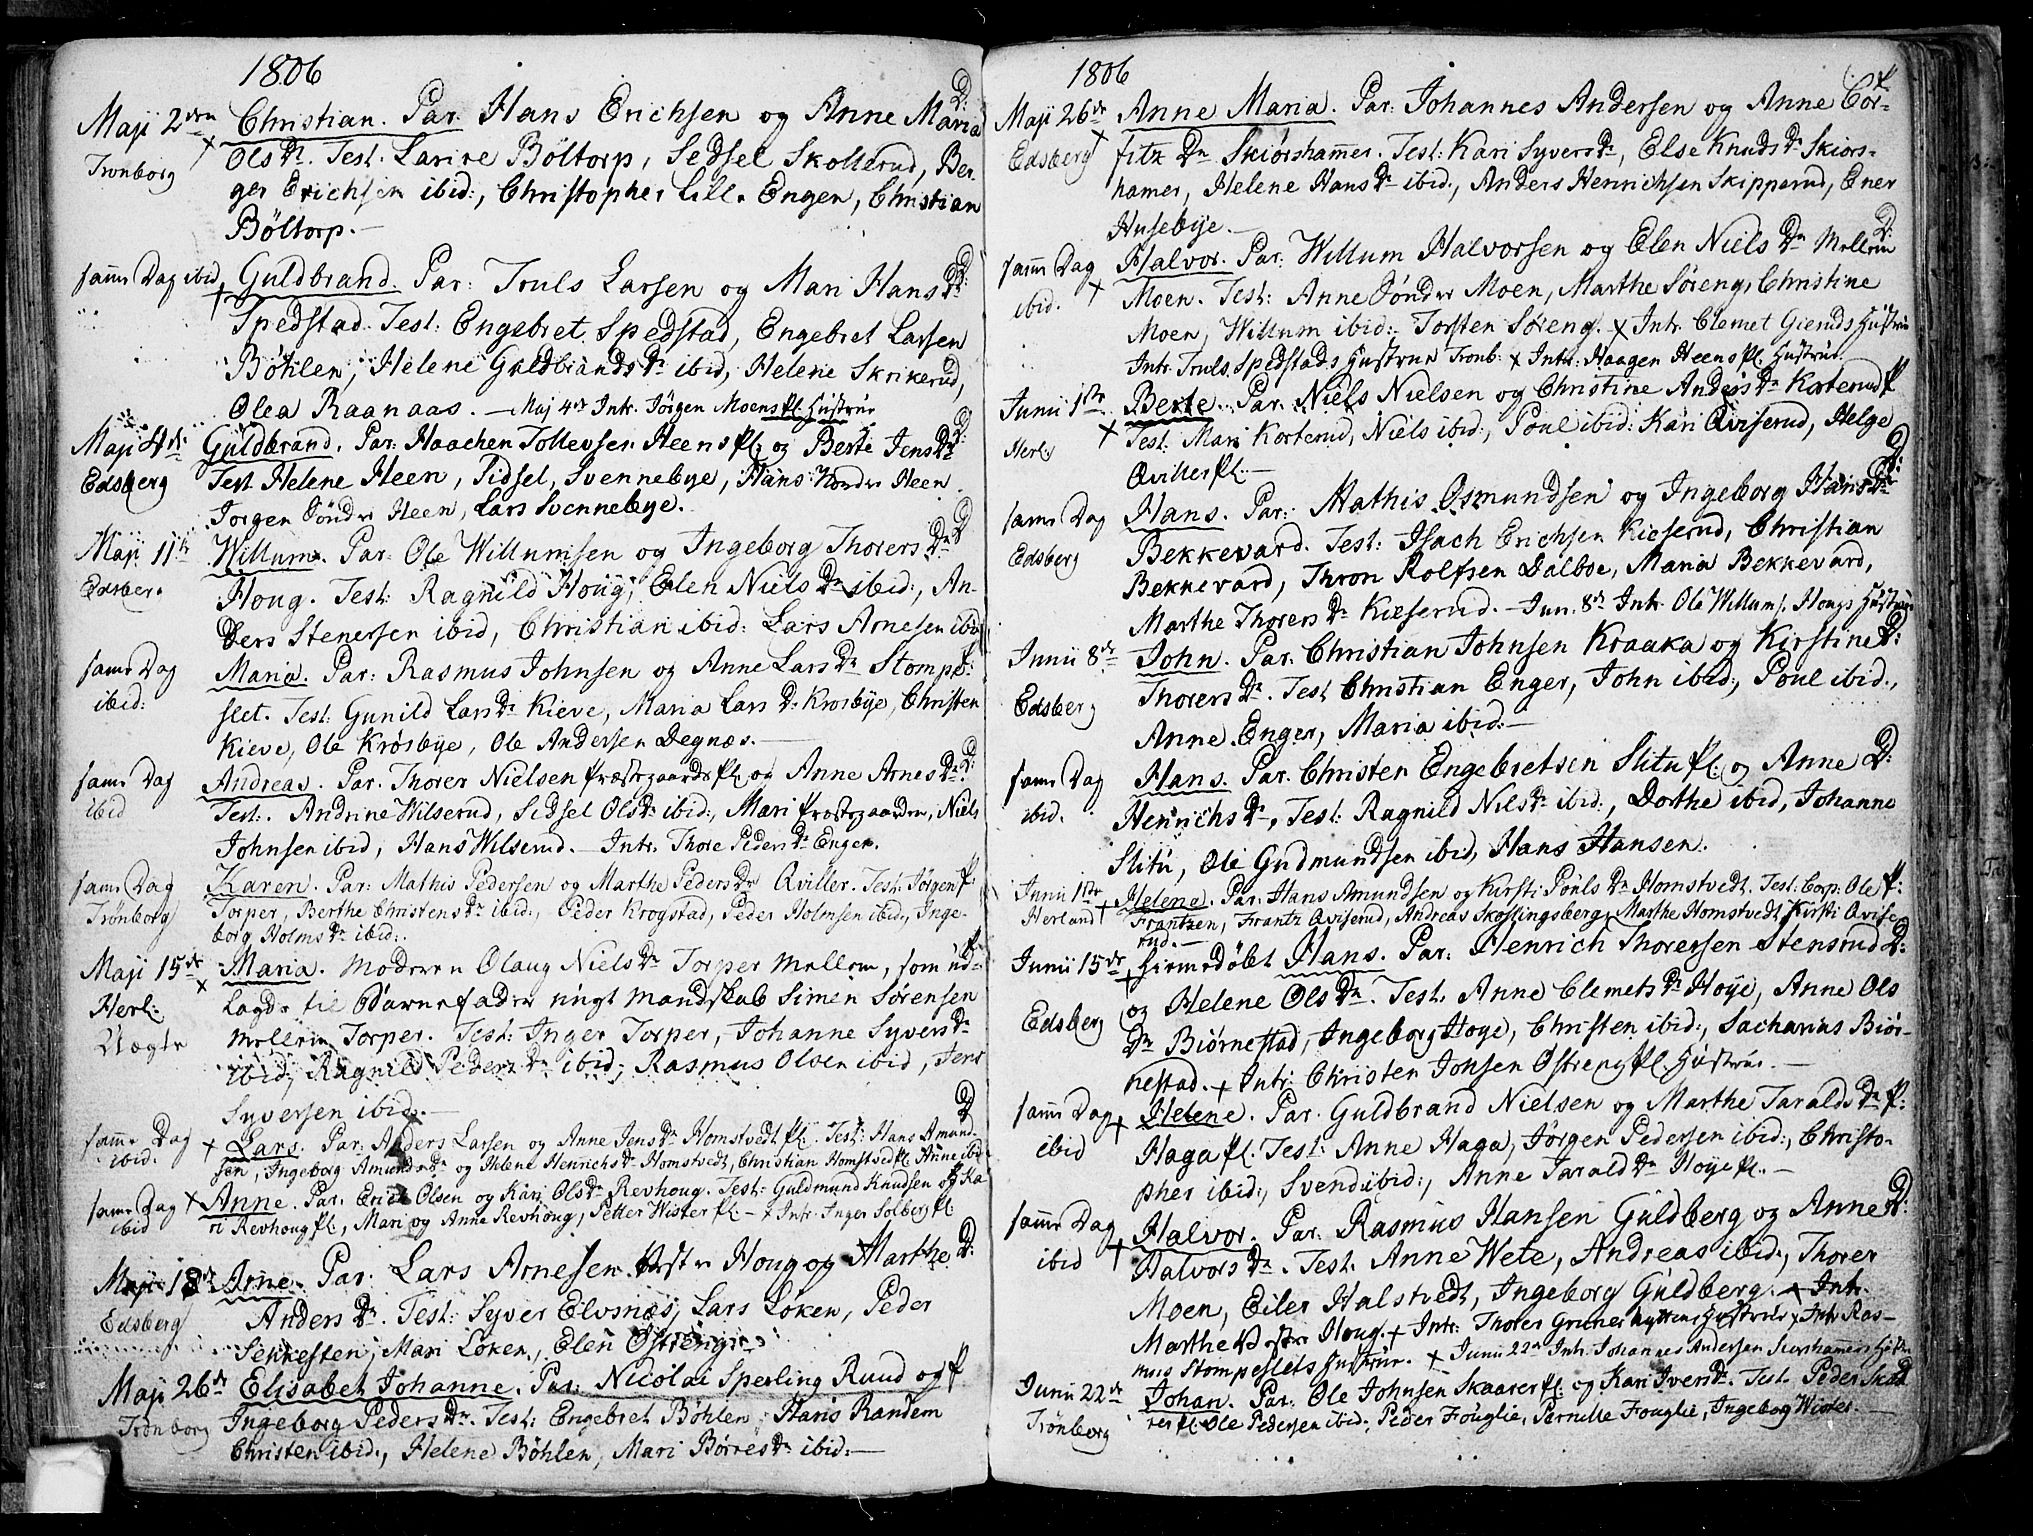 1806
Maji 2den Christian. Par. Hans Erichsen og Anne Maria D:
Tronborg Ols Dr. Test. Larine Böltorp, Sedsel Skollerud, Ber-
ger Erichsen ibid:, Christopher Lill. Engen, Christian
Böltorp.
samme Dag ibid Guldbrand. Par: Truls Larsen og Mari Hans Dr. D:
Spedstad. Test: Engebret Spedstad, Engebret Larsen
Böhlen, Helene Guldbrands Dr ibid, Helene Skrikerud,
Olea Raanaas. — Maj 4de Intr. Jörgen Moens Pl. Hustrue
Maji 4de Guldbrand. Par: Haachen Tollevsen Heens Pl. og Berte Jens Dr. D:
Edsberg Test Helene Heen, Sidsel, Svennebye, Hans Nordre Heen
Jorgen Söndre Heen, Lars Svennebye.
Maji 11te Willum. Par: Ole Willumsen og Ingeborg Thorers Dr. D
Edsber. Houg. Test: Ragnild Houg, Elen Niels Dr ibid:, An-
ders Stenersen ibid, Christian ibid: Lars Arnesen ibid
samme Dag Maria. Par: Rasmus Johnsen og Anne Lars Dr Stompe-
ibid: slet. Test: Gunild Lars Dr Kieve, Maria Lars Dr Krosbye, Christen
Kieve, Ole Krösbye, Ole Andersen Degnæs.
samme Dag Andreas. Par. Thorer Nielsen Præstegaards Pl. og Anne Arnes Dr. D:
ibid Test. Andrine Wilserud, Sidsel Ols Dr ibid:, Mari Præstegaarden, Niels
Johnsen ibid, Hans Wilserud. — Intr. Thore Peders Dr Engen.
samme Dag Karen. Par: Mathis Pedersen og Marthe Peders Dr Qviller. Test: Jörgen P:
Trönborg Torper, Berthe Christens Dr ibid:, Peder Krogstad, Peder Holmsen ibid:, Inge-
borg Holms Dr ibid:.
Maji 15de Maria. Moderen Olaug Niels Dr Torper mellem, som ud-
Herl: lagde til Barnefader ungt Mandskab Simen Sörensen
Uægte mellem Torper. Test: Inger Torper, Johanne Syvers Dr
ibid, Ragnild Peders Dr ibid, Rasmus Olsen ibid, Jens
Syversen ibid:. —
samme Dag Lars. Par: Anders Larsen og Anne Jens Dr Homstvedt Pl. Test: Hans Amund- D
ibid. sen, Ingeborg Amunds Dr og Helene Henrichs Dr Homstvedt, Christian Homstved Pl. Anne ibid
samme Dag Anne. Par. Erich Olsen og Kari Ols Dr Revhoug. Test: Guldmund Knudsen og Ka
ibid ri Revhoug Pl., Mari og Anne Revhoug, Petter Wister Pl. — Intr. Inger Solberg Pl.
Maji 18de Arne. Par: Lars Arnesen Vestre Houg og Marthe D:
Edsberg Anders Dr. Test: Syver Elvsnæs, Lars Löken, Peder
Sekkesten, Mari Löken, Elen Östrenge
Maji 26de Elisabet Johanne. Par: Nicolai Sperling Ruud og P
Trönborg Ingeborg Peders Dr. Test: Engebret Böhlen, Hans Randem
Christen ibid:, Helene Böhlen, Mari Börres Dr ibid: —
1806
Maji 26de Anne Maria. Par: Johannes Andersen og Anne Cor-
Edsberg fitz Dr Skiörshammer. Test: Kari Syvers Dr, Else Knuds Dr Skiors-
hamer, Helene Hans Dr ibid:, Anders Henrichsen Skipperud, Ener
Husebye.
samme Dag Halvor. Par: Willum Halvorsen og Elen Niels Dr Mellem D:
ibid. Moen. Test: Anne Söndre Moen, Marthe Söreng, Christine
Moen, Willum ibid:. Torsten Söreng. x Intr. Clemet Gieruds Hustrue
Intr. Truls Spedstads Hustrue Tronb: x Intr: Haagen Heens Pl. Hustrue
Junii 1ste Berte. Par. Niels Nielsen og Christine Anders Dr Korterud P
Herl: Test: Mari Korterud, Niels ibid:, Poul ibid: Kari Qviserud, Helge
Qviller Pl. —
samme Dag Hans. Par: Mathis Osmundsen og Ingeborg Hans Dr D:
Edsberg Bekkevard. Test: Isach Erichsen Kieserud, Christian
Bekkevard, Thron Rolfsen Dalboe, Maria Bekkevard,
Marthe Thorers Dr Kieserud. — Jun. 8de Intr. Ole Willums. Hougs Hustrue
Junii 8de John. Par. Christian Johnsen Kraaka og Kirstine D:
Edsberg Thorers Dr. Test Christian Enger, John ibid:, Poul ibid.,
Anne Enger, Maria ibid: —
samme Dag Hans. Par. Christen Engebretsen Slitu Pl. og Anne D:
ibid. Henrichs Dr. Test: Ragnild Nils Dr ibid:, Dorthe ibid, Johanne
Slitu, Ole Gudmundsen ibid, Hans Hansen.
Junii 1ste Helene. Par. Hans Amundsen og Kirsti Pouls Dr Homstvedt. Test: Corp: Ole P:
Herland Frantzen, Frantz Qviserud, Andreas Skottingsberg, Marthe Homstvedt, Kirsti Qvise-
rud. —
Junii 15de hiemedöbt Hans. Par: Henrich Thorersen Stensrud D:
Edsberg og Helene Ols Dr. Test. Anne Clemets Dr Höye, Anne Ols
Dr Biörnestad, Ingeborg Hoye, Christen ibid:, Sacharias Biör-
nestad. x Intr. Christen Johsen Östreng Pl. Hustrue. —
samme Dag Helene. Par. Guldbrand Nielsen og Marthe Taralds Dr P:
ibid Haga Pl. Test: Anne Haga, Jörgen Pedersen ibid:, Christo-
pher ibid:, Svend ibid:, Anne Tarald Dr Höye Pl. —
samme Dag Halvor. Par. Rasmus Hansen Guldberg og Anne D:
ibid Halvors Dr. Test. Anne Wete, Andreas ibid:, Thorer
Moen, Eiler Halstvedt, Ingeborg Guldberg. x Intr.
Marthe Vestre Houg. x Intr: Thorer Gruner Hustrue x Intr Ras-
mus Stompeslets Hustrue. x Junii 22de Intr. Johannes Andersen Skiorshammers Hustr
Junii 22de Johan. Par. Ole Johnsen Skaarer Pl. og Kari Ivers Dr. Test. Peder Skaa
Trönberg rer Pl. Ole Pedersen ibid:, Peder Fouglie, Pernille Fouglie, Ingeborg Wister.